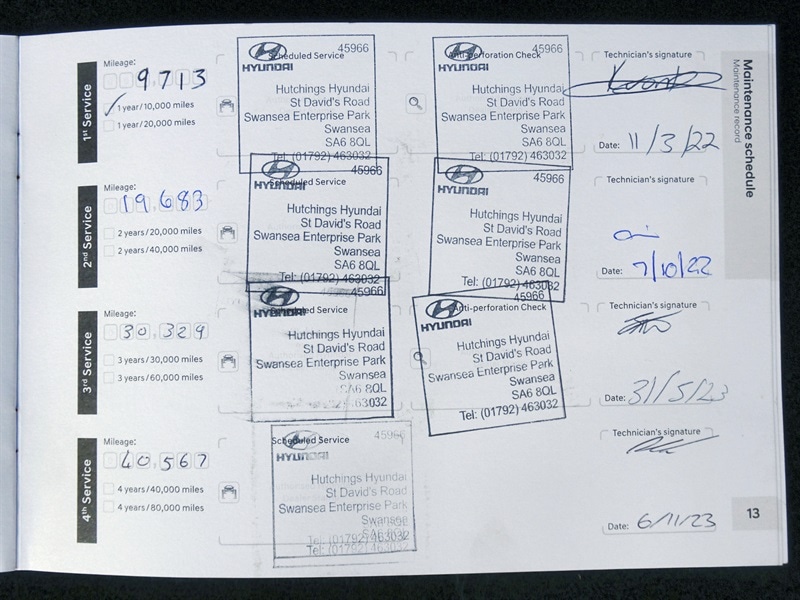 Maintenance schedule
Maintenance record
1st Service
Mileage:
9713
1 year/10,000 miles
1 year/20,000 miles
Scheduled Service
45966
HYUNDAI
Hutchings Hyundai
St David's Road
Swansea Enterprise Park
Swansea
SA6 8QL
Tel: (01792) 463032
Anti-perforation Check
45966
HYUNDAI
Hutchings Hyundai
St David's Road
Swansea Enterprise Park
Swansea
SA6 8QL
Tel: (01792) 463032
Technician's signature
Date: 11/3/22
2nd Service
Mileage:
19,683
2 years/20,000 miles
2 years/40,000 miles
Scheduled Service
45966
HYUNDAI
Hutchings Hyundai
St David's Road
Swansea Enterprise Park
Swansea
SA6 8QL
Tel: (01792) 463032
45966
HYUNDAI
Hutchings Hyundai
St David's Road
Swansea Enterprise Park
Swansea
SA6 8QL
Tel: (01792) 463032
Technician's signature
Date: 7/10/22
3rd Service
Mileage:
30,329
3 years/30,000 miles
3 years/60,000 miles
Scheduled Service
45966
HYUNDAI
Hutchings Hyundai
St David's Road
Swansea Enterprise Park
Swansea
SA6 8QL
Tel: (01792) 463032
Anti-perforation Check
45966
HYUNDAI
Hutchings Hyundai
St David's Road
Swansea Enterprise Park
Swansea
SA6 8QL
Tel: (01792) 463032
Technician's signature
Date: 31/5/23
4th Service
Mileage:
40,567
4 years/40,000 miles
4 years/80,000 miles
Scheduled Service
45966
HYUNDAI
Hutchings Hyundai
St David's Road
Swansea Enterprise Park
Swansea
SA6 8QL
Tel: (01792) 463032
Tel: (01792) 463032
Technician's signature
Date: 6/11/23
13